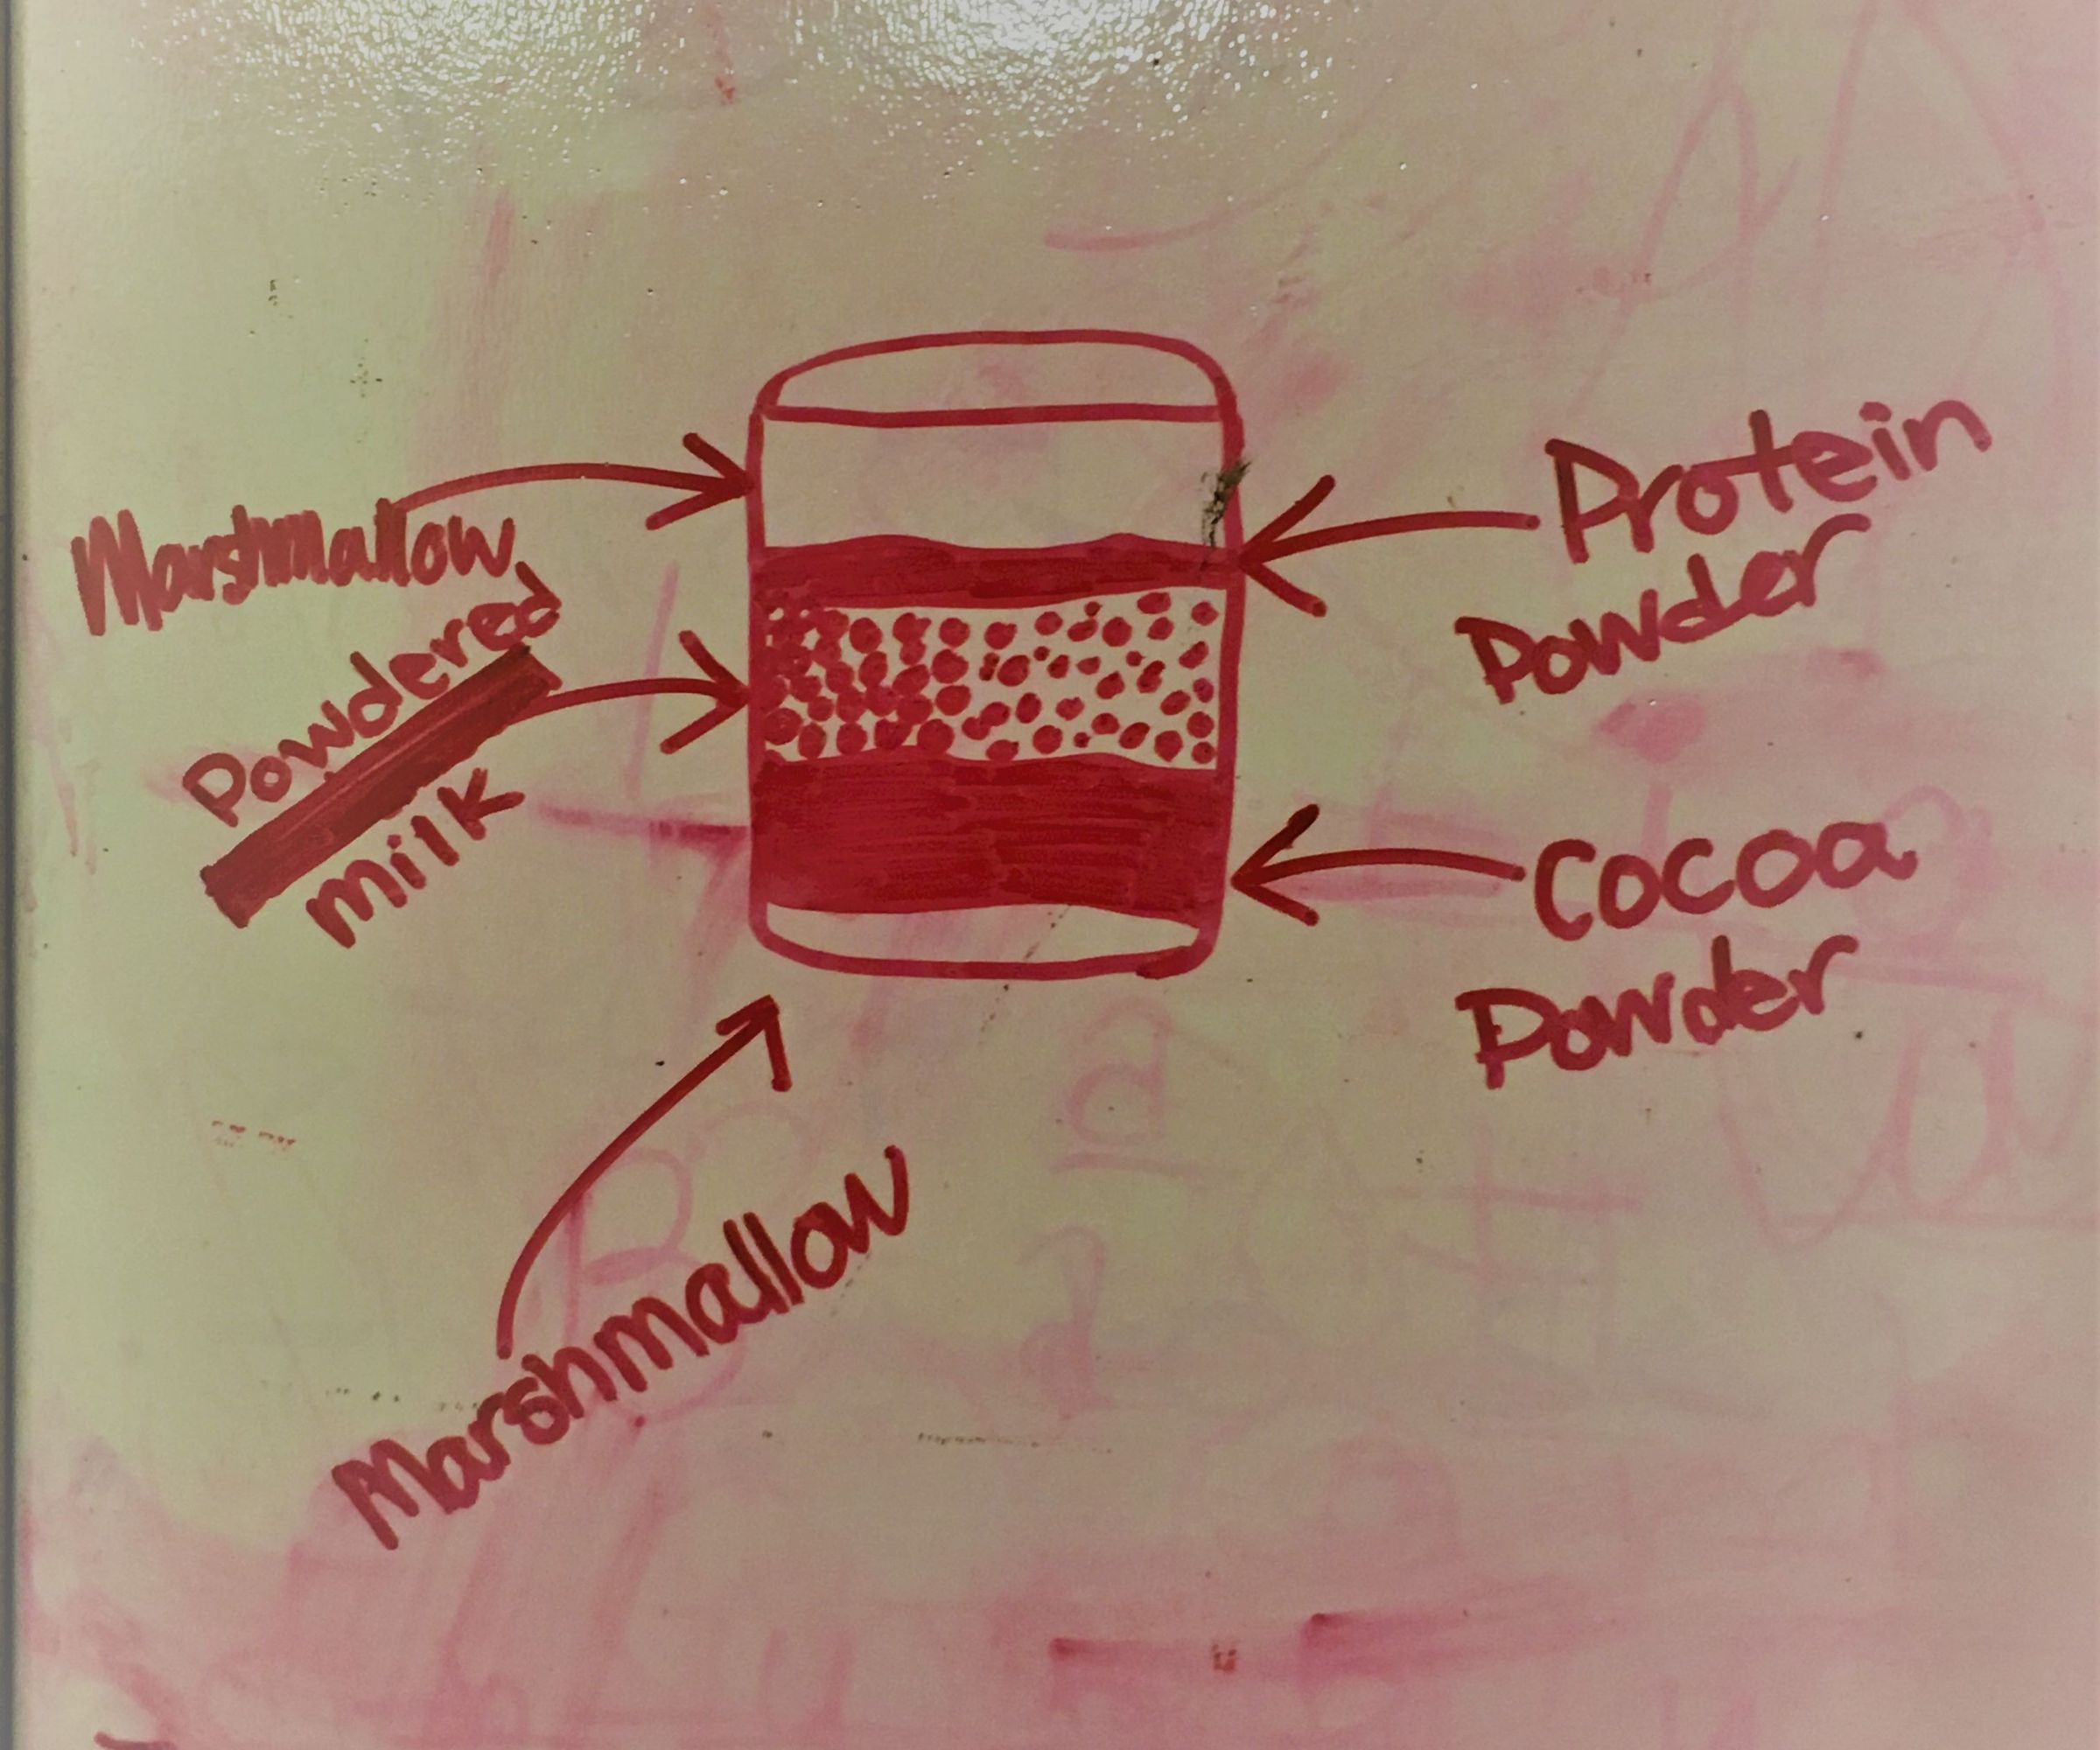 Marshmallow
Powdered
milk
Protein
Powder
Cocoa
Powder
Marshmallow